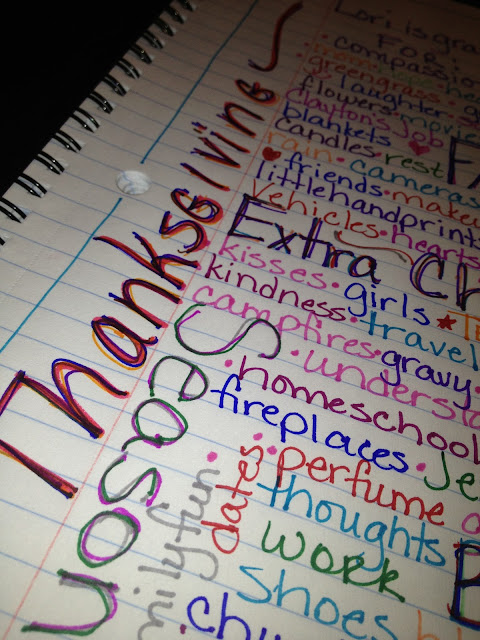 Thanksgiving
Season
Lori is gra
FOR:
• compassion
• greengrass •
• laughter •
flowers • movie
Clayton's Job
blankets
candles • rest
rain • cameras
• friends • makeu
littlehandprints
Vehicles • hearts
Extra Ch
kisses • girls
kindness • travel
campfires • gravy •
• understa
• homeschool
fireplaces • Je
• perfume
dates
thoughts
work
shoes
milyfun
• chu